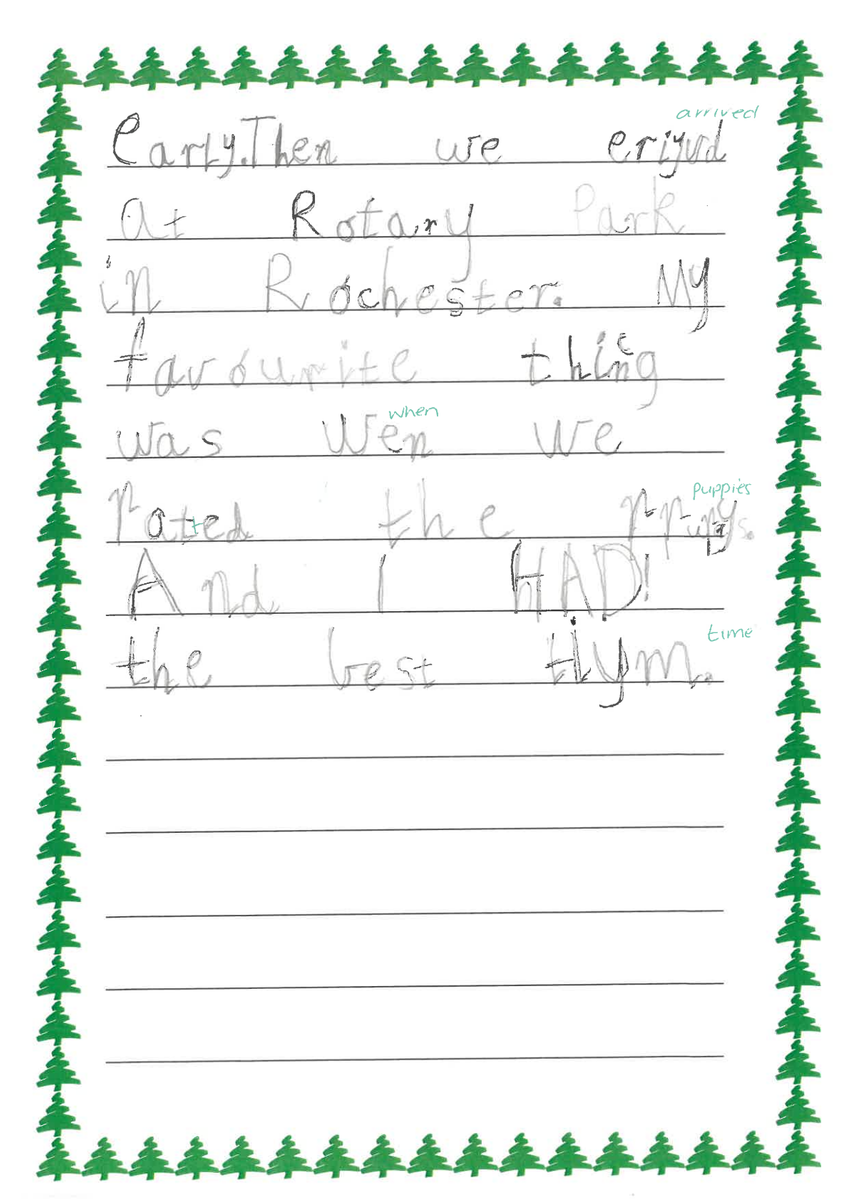 arrived
Early.Then we eriyvd
At Rotary Park
in Rochester. My
favourite thing
when
was Wen we
puppies
rated the
And I HAD!
time
the best tiym.